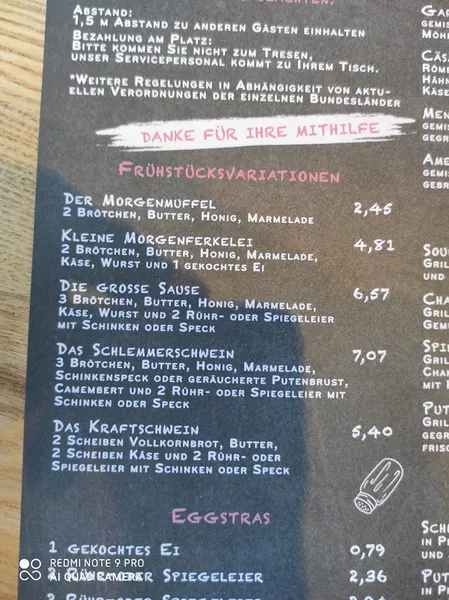 Abstand:
1,5 m Abstand zu anderen Gästen einhalten
Bezahlung am Platz:
Bitte kommen Sie nicht zum Tresen,
unser Servicepersonal kommt zu Ihrem Tisch.
*Weitere Regelungen in Abhängigkeit von aktu-
ellen Verordnungen der einzelnen Bundesländer
Danke für Ihre Mithilfe
Frühstücksvariationen
Der Morgenmuffel 2,45
2 Brötchen, Butter, Honig, Marmelade
Kleine Morgenferkelei 4,81
2 Brötchen, Butter, Honig, Marmelade,
Käse, Wurst und 1 gekochtes Ei
Die grosse Sause 6,57
3 Brötchen, Butter, Honig, Marmelade,
Käse, Wurst und 2 Rühr- oder Spiegeleier
mit Schinken oder Speck
Das Schlemmerschwein 7,07
3 Brötchen, Butter, Honig, Marmelade,
Schinkenspeck oder geräucherte Putenbrust,
Camembert und 2 Rühr- oder Spiegeleier mit
Schinken oder Speck
Das Kraftschwein 5,40
2 Scheiben Vollkornbrot, Butter,
2 Scheiben Käse und 2 Rühr- oder
Spiegeleier mit Schinken oder Speck
Eggstras
1 gekochtes Ei 0,79
2 Rühr- oder Spiegeleier 2,36
REDMI NOTE 9 PRO
AI QUAD CAMERA